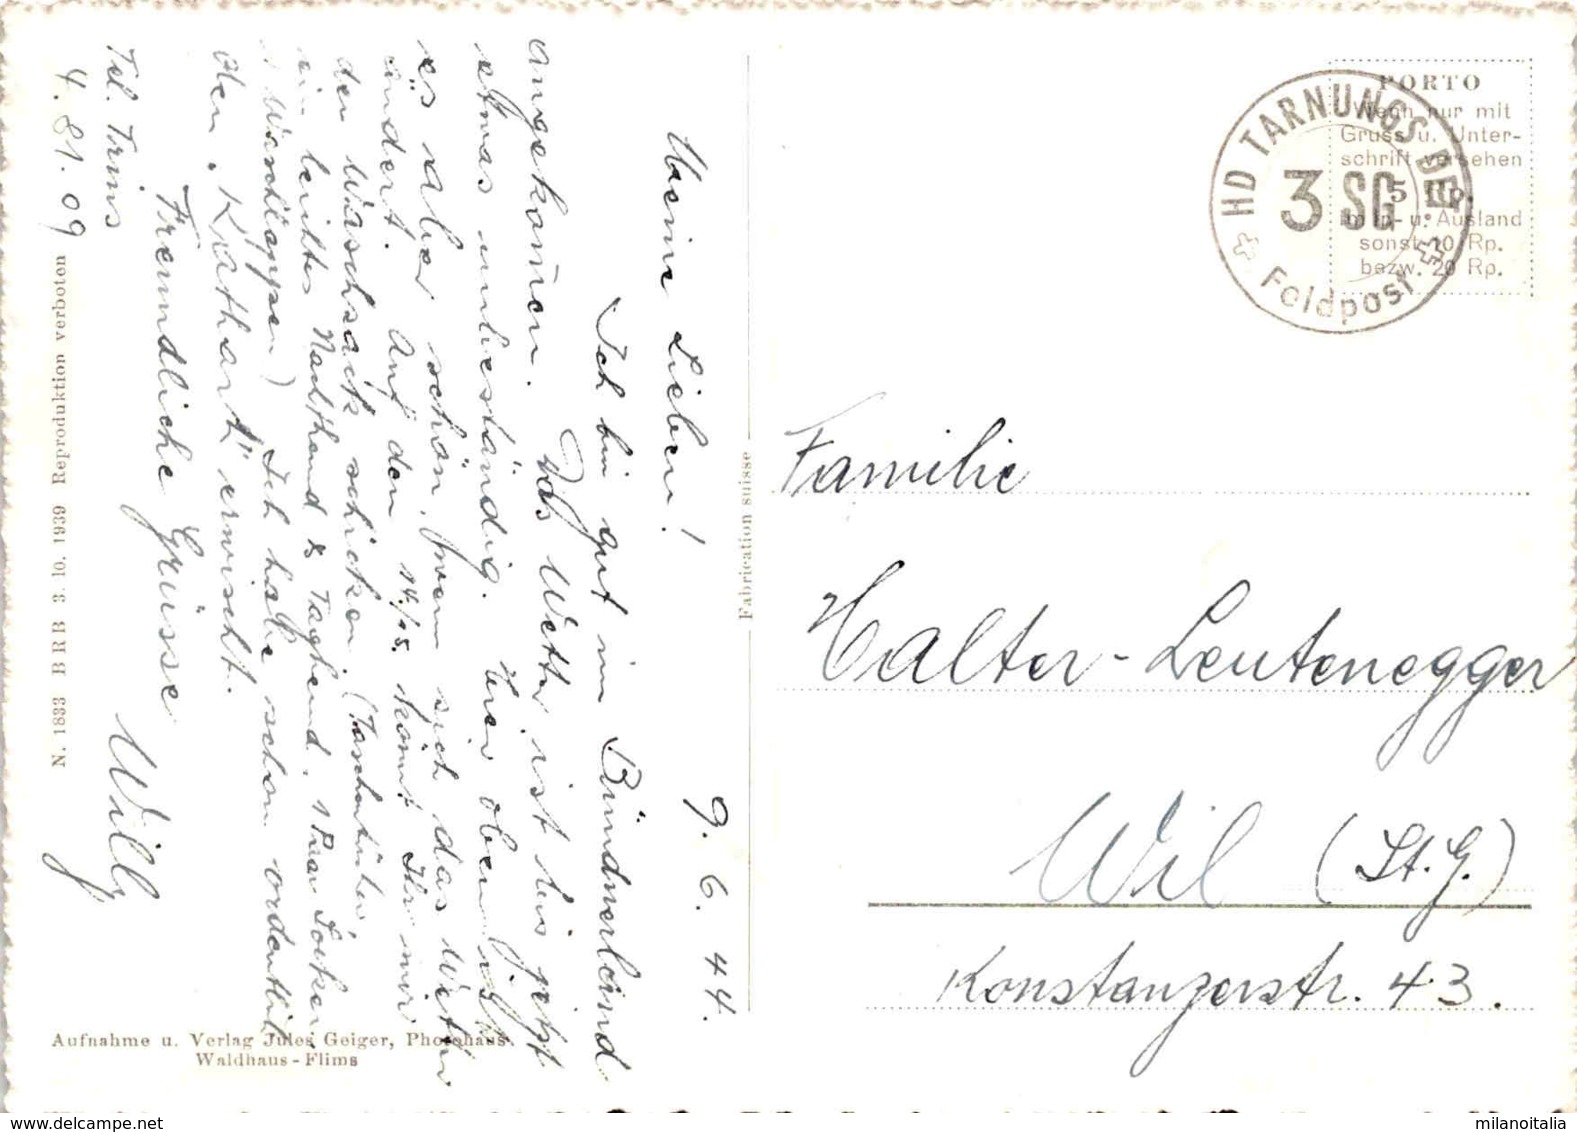 9. 6. 44.
Meine Lieben!
Ich bin gut im Bündnerland
angekommen. Das Wetter ist bis jetzt
etwas unbeständig. Hier oben ist
es aber schön, wenn sich das Wetter
ändert. Auf den 14./15. könnt Ihr mir
den Waschsack schicken (Taschentücher
ein leichtes Nachthemd & Taghemd, 1 Paar Socken
Waschlappen) Ich habe schon ordentlich
den "Kathart" erwischt.
Freundliche Grüsse
Willy
Tel. Trins
4. 81. 09
N. 1833 BRB 3. 10. 1939 Reproduktion verboten
Aufnahme u. Verlag Jules Geiger, Photohaus,
Waldhaus-Flims
Fabrication suisse
PORTO
Wenn nur mit
Gruss u. Unter-
schrift versehen
5 Rp.
im In- u. Ausland
sonst 10 Rp.
bezw. 20 Rp.
HD TARNUNGS DET.
3 SG
Feldpost
Familie
Halter-Leutenegger
Wil (St. G.)
Konstanzerstr. 43.
www.delcampe.net
milanoitalia